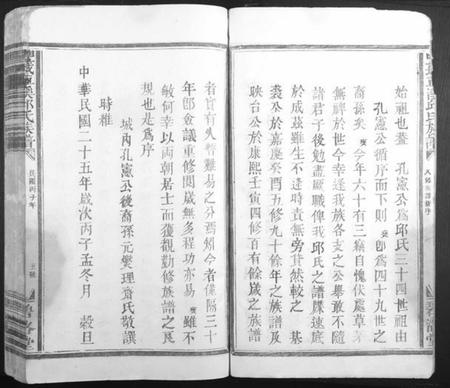 始祖也蓋　孔憲公爲邱氏三十四世祖由
孔憲公循序而下則　即爲四十九世之
裔孫矣　今年六十有三竊自愧伏處草
無裨於世今幸逢我族各支之公舉敢不隨
諸君子後勉盡厥職俾我邱氏之譜牒速底
於成茲雖生不逢時責無旁貸然較之　基
裘公於嘉慶癸酉五修九十餘年之族譜及
映台公於康熙壬寅四修百有餘歲之族譜
者實有久暫難易之分焉矧今者僅隔三十
年即會議重修閱歲無多程功亦易　雖不
敏何幸以兩朝居士而獲觀勸修族譜之
規也是爲序
時維
城內孔憲公後裔孫元燮理齋氏敬譔
中華民國二十五年歲次丙子孟冬月　穀旦
邱氏族譜
民國丙子年